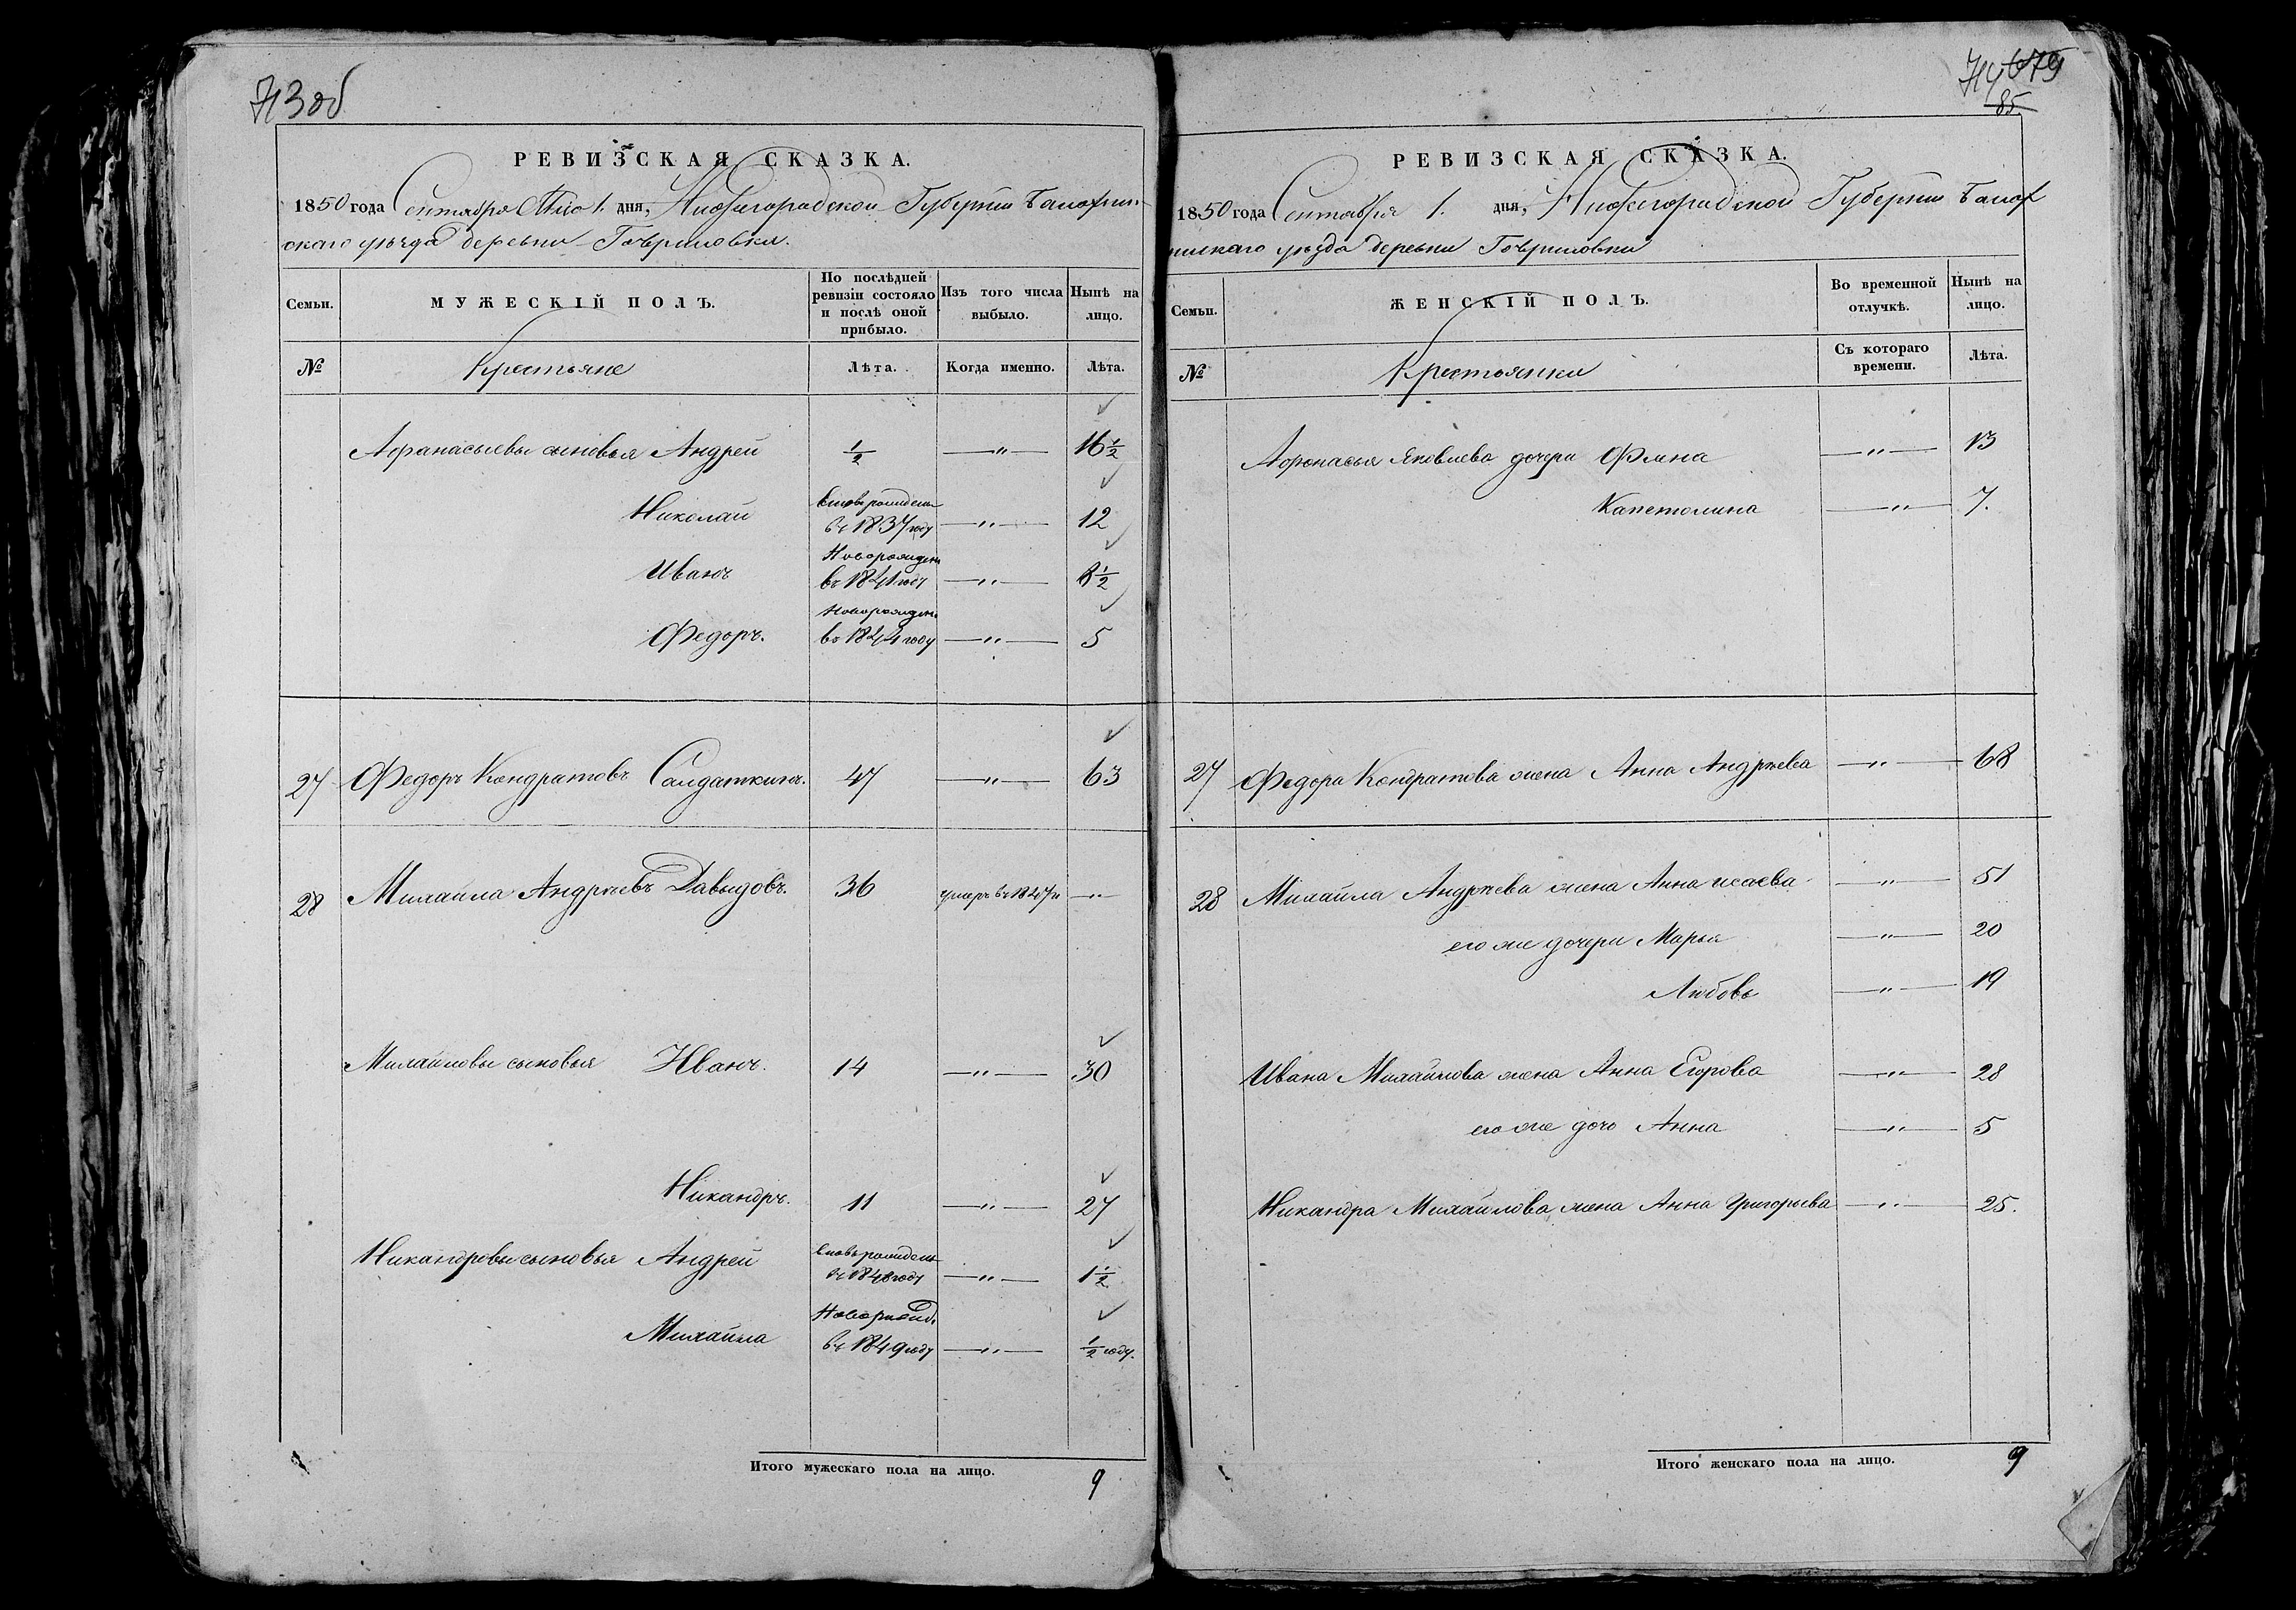 713об
РЕВИЗСКАЯ СКАЗКА.
1850 года Сентября 1. дня, Нижегородской Губернии Балахнин-
скаго уѣзда деревни Гавриловки.
Семьи.
МУЖЕСКІЙ ПОЛЪ.
По послѣдней ревизіи состояло и послѣ оной прибыло.
Изъ того числа выбыло.
Нынѣ на лицо.
№ Крестьяне Лѣта. Когда именно. Лѣта.
Афанасьевы сыновья Андрей ½ —"— 16½
Николай вновь рожденъ въ 1837 году —"— 12
Иванъ Новорожден въ 1841 году —"— 8½
Федоръ. Новорожден. въ 1844 году —"— 5
27 Федоръ Кондратовъ Салдаткинъ. 47 —"— 63
28 Михаила Андреевъ Давыдовъ. 36 умеръ въ —"—
Михайловы сыновья Иванъ. 14 —"— 30
Никандръ. 11 —"— 27
Никандровы сыновья Андрей вновь рожденъ въ 1848 году —"— 1½
Михаила Новорожд. въ 1849 году —"— ½ году.
Итого мужескаго пола на лицо. 9
714 679
85
РЕВИЗСКАЯ СКАЗКА.
1850 года Сентября 1. дня, Нижегородской Губернии Балах
нинскаго уѣзда деревни Гавриловки
Семьи.
ЖЕНСКІЙ ПОЛЪ.
Во временной отлучкѣ.
Нынѣ на лицо.
№ Крестьянки Съ котораго времени. Лѣта.
Афонасья Яковлева дочери Фяина —"— 13
Капетолина —"— 7.
27 Федора Кондратова жена Анна Андреева —"— 68
28 Михайла Андреева жена Анна исаева —"— 51
его же дочери Марья —"— 20
Любовь —"— 19
Ивана Михайлова жена Анна Егорова —"— 28
его же дочь Анна —"— 5
Никандра Михайлова жена Анна Григорьева —"— 25.
Итого женскаго пола на лицо. 9